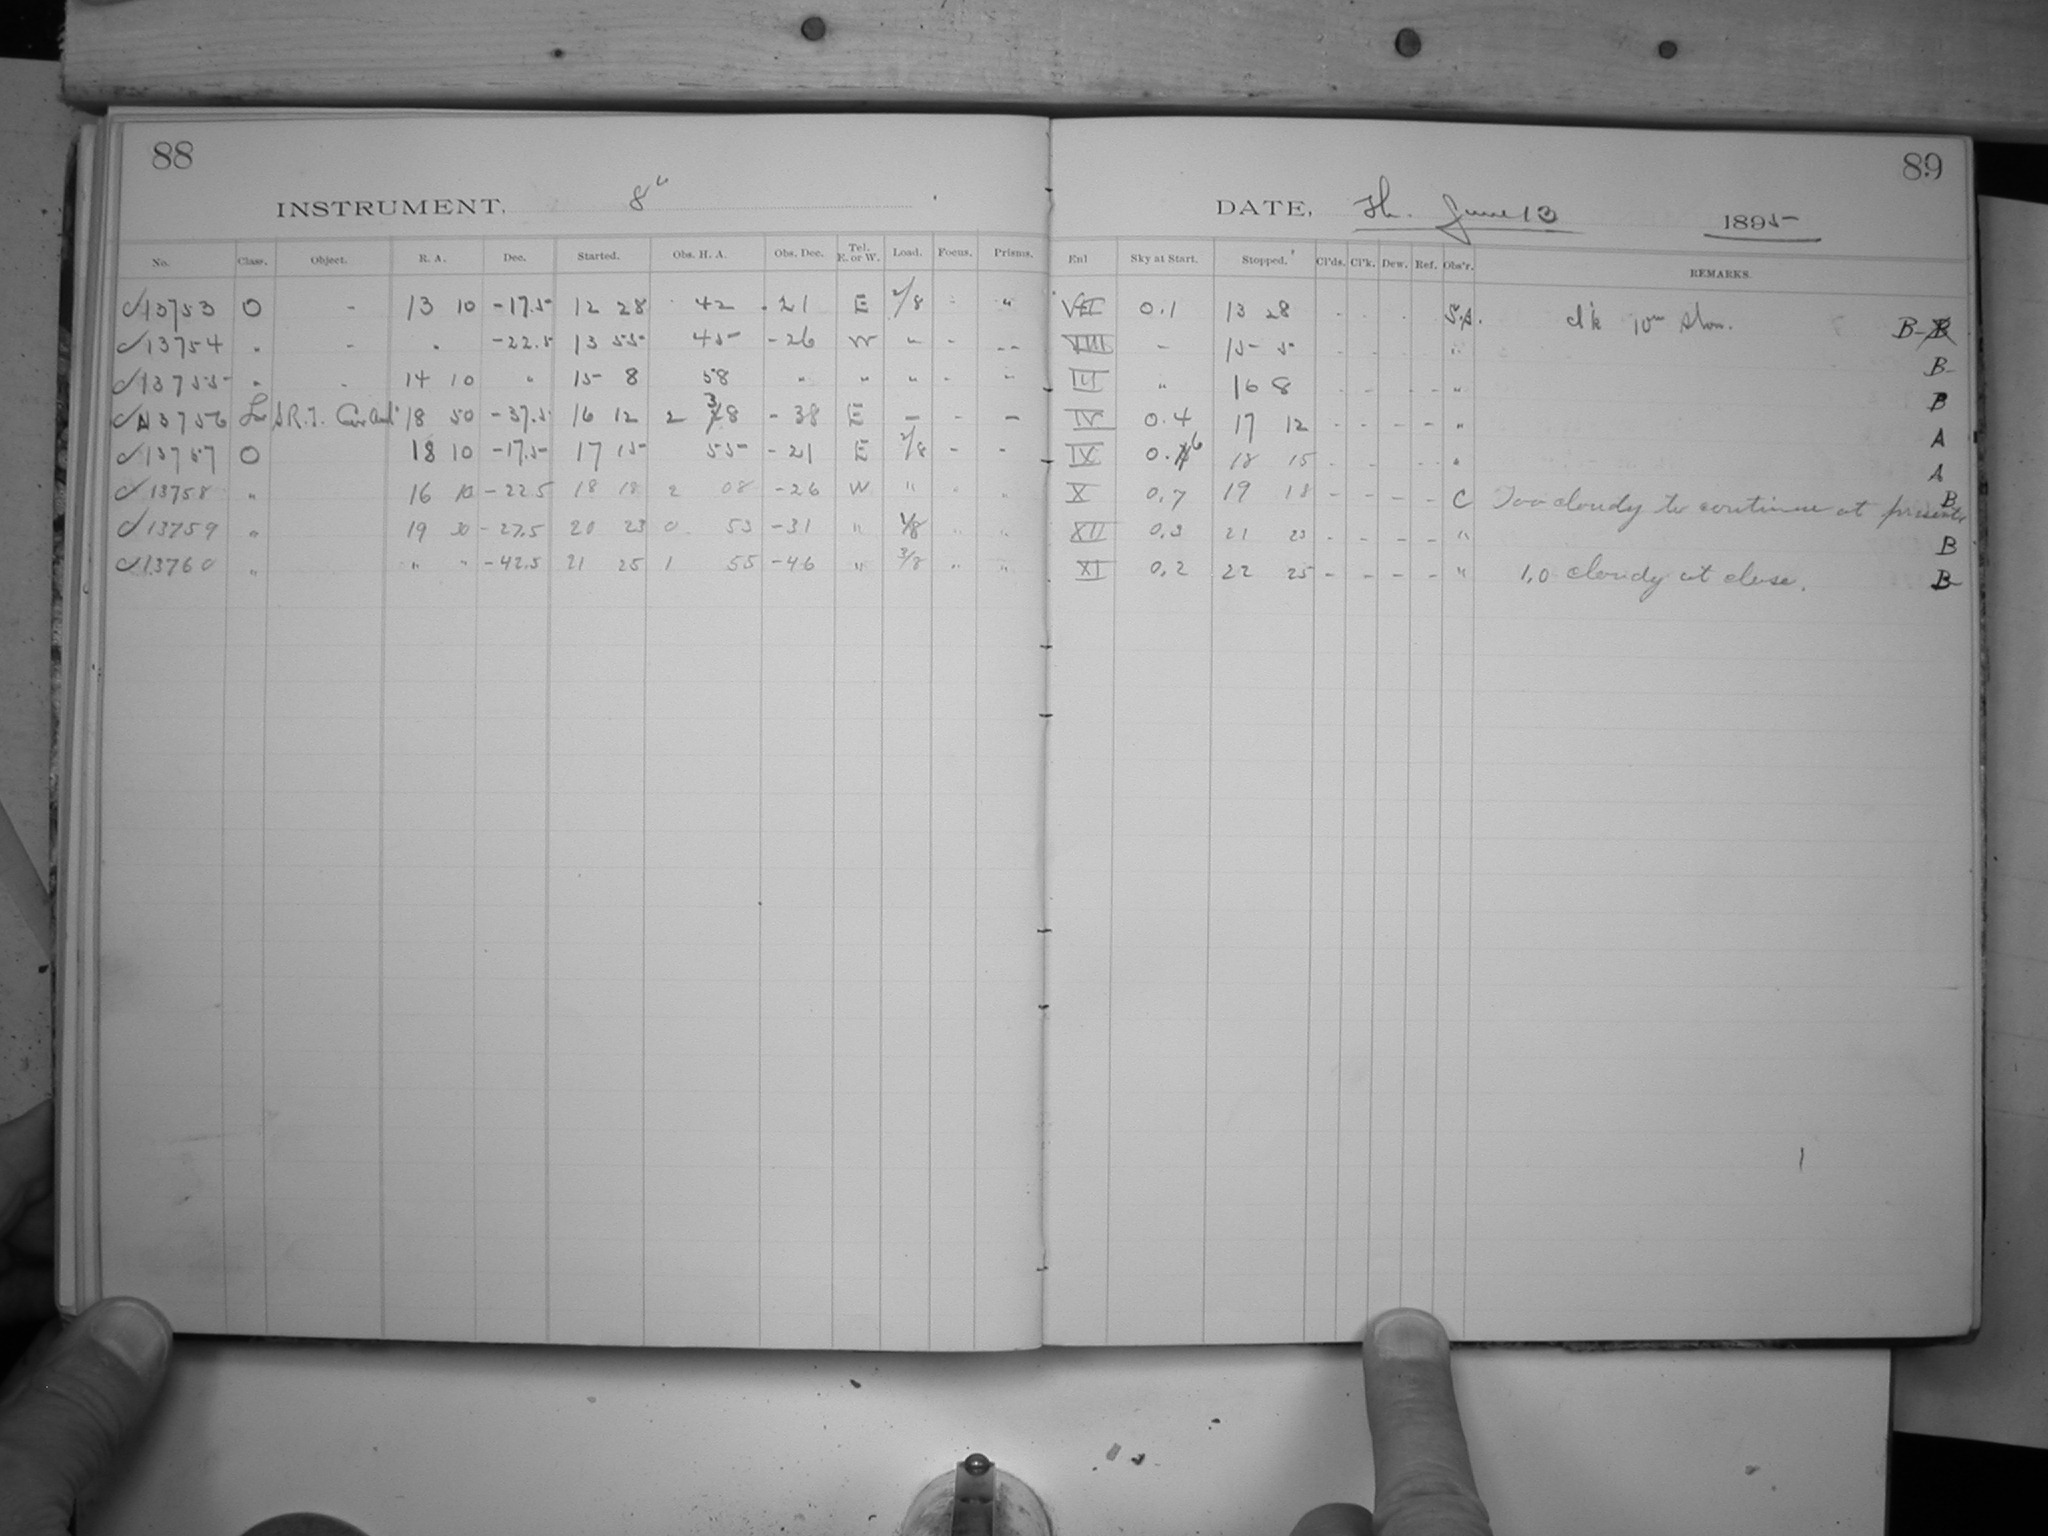 88
89
INSTRUMENT, 8"
DATE, Th. June 13 1895
No. Class. Object. R. A. Dec. Started. Obs. H. A. Obs. Dec. Tel. E. or W. Load. Focus. Prisms. Enl Sky at Start. Stopped. Cl'ds. Cl'k. Dew. Ref. Obs'r. REMARKS.
✓13753 O - 13 10 -17.5 12 28 42 -21 E 2/8 - " VII 0.1 13 28 - - - - S.A. cl'k 10m slow. B-
✓13754 " " -22.5 13 55 45 -26 W " - -- VIII - 15 5 - - - - " B-
✓13755 " - 14 10 " 15 8 58 " " " - - III " 16 8 - - - - " B
✓13756 18 50 -37.5 16 12 2 38 -38 E - - - IV 0.4 17 12 - - - - " A
✓13757 O 18 10 -17.5 17 15 55 -21 E 2/8 - - IX 0.6 18 15 - - - - " A
✓13758 " 16 10 -22.5 18 18 2 08 -26 W " " " X 0.7 19 18 - - - - C Too cloudy to continue at present B
✓13759 " 19 30 -27.5 20 23 0 53 -31 " 1/8 " " XII 0.3 21 23 - - - - " B
✓13760 " " " -42.5 21 25 1 55 -46 " 3/8 " " XI 0.2 22 25 - - - - " 1.0 cloudy at close. B